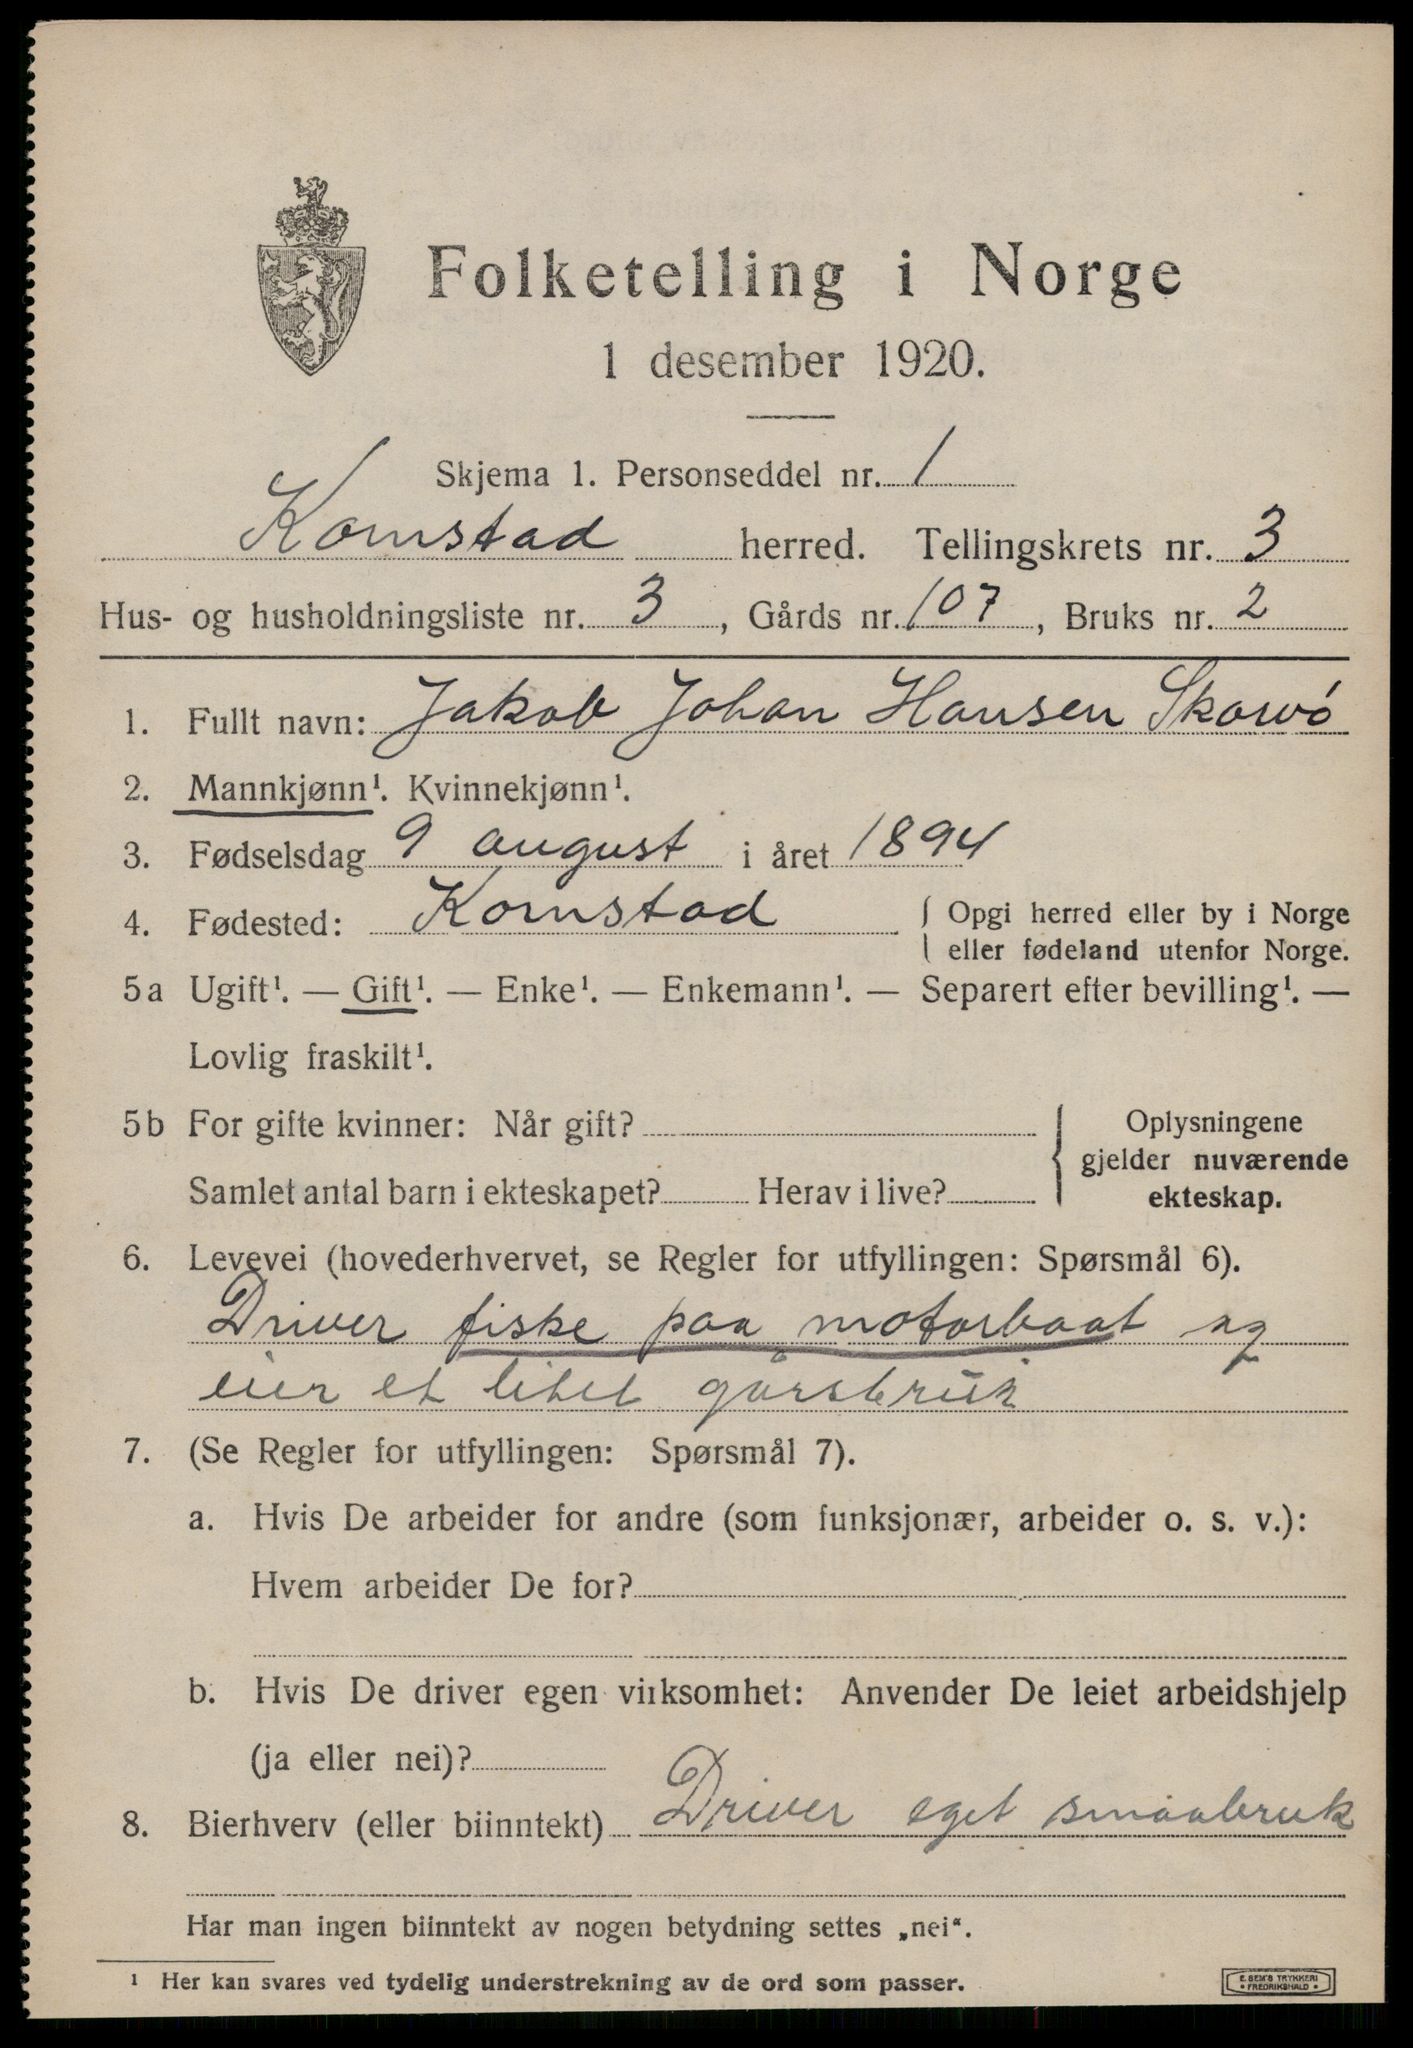 Folketelling i Norge
1 desember 1920.
Skjema 1. Personseddel nr. 1
Kornstad herred. Tellingskrets nr. 3
Hus- og husholdningsliste nr. 3, Gårds nr. 107, Bruks nr. 2
1. Fullt navn: Jakob Johan Hansen Skarvö
2. Mannkjønn¹. Kvinnekjønn¹.
3. Fødselsdag 9 august i året 1894
4. Fødested: Kornstad { Opgi herred eller by i Norge
eller fødeland utenfor Norge.
5a Ugift¹. — Gift¹. — Enke¹. — Enkemann¹. — Separert efter bevilling¹. —
Lovlig fraskilt¹.
5b For gifte kvinner: Når gift? { Oplysningene
gjelder nuværende
Samlet antal barn i ekteskapet? Herav i live? ekteskap.
6. Levevei (hovederhvervet, se Regler for utfyllingen: Spørsmål 6).
Driver fiske paa motorbaat og
eier et litet gårsbruk
7. (Se Regler for utfyllingen: Spørsmål 7).
a. Hvis De arbeider for andre (som funksjonær, arbeider o. s. v.):
Hvem arbeider De for?
b. Hvis De driver egen virksomhet: Anvender De leiet arbeidshjelp
(ja eller nei)?
8. Bierhverv (eller biinntekt) Driver eget smaabruk
Har man ingen biinntekt av nogen betydning settes „nei“.
¹ Her kan svares ved tydelig understrekning av de ord som passer.
E. SEM'S TRYKKERI
• FREDRIKSHALD •